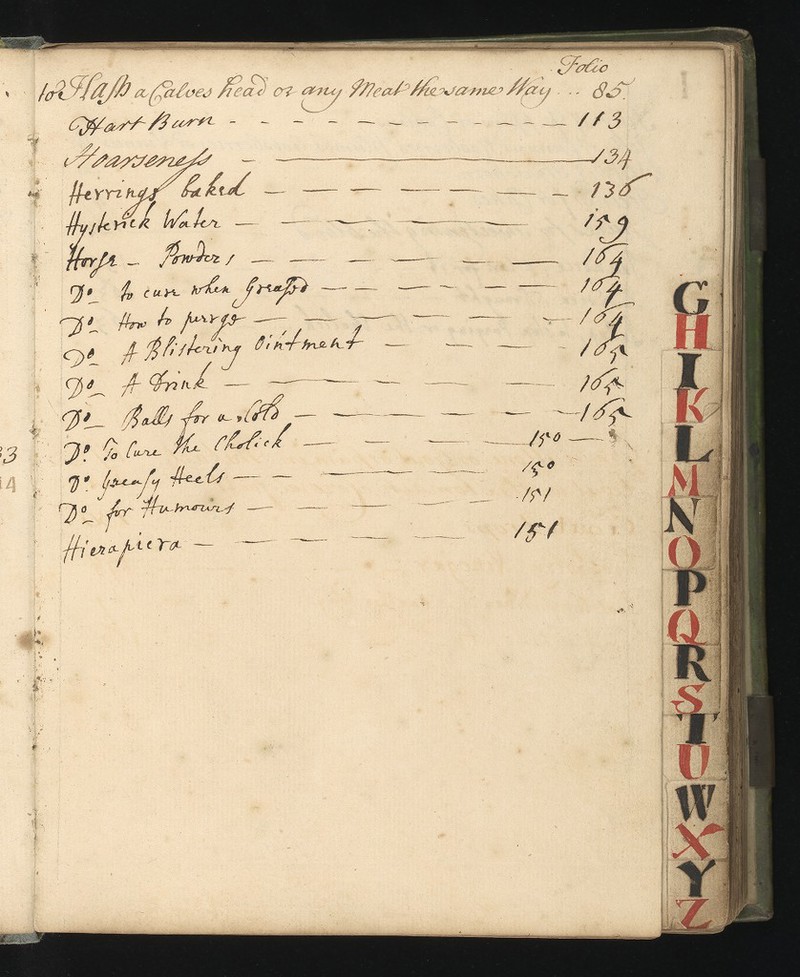 Folio
to Hash a Calves head or any Meat the same Way ... 85.
Hart Burn - - - - - - - - - - 113
Hoarseness - ——— 134
Herrings baked — — — — — — - 136
Hysterick Water — — — — — — 159
Horse - Powders — — — — — — 164
Do to cure when Greased — — — — — 164
Do How to purge — — — — — — 164
Do A Blistering Ointment — — — — 165
Do A Drink — — — — — — 165
Do Balls for a Cold — — — — — 165
Do To Cure the Cholick — — — — 150 —
Do Greasy Heels — — — — — 150
Do for Humours — — — — — 151
Hierapicra — — — — — — 151
33
14
G
H
I
K
L
M
N
O
P
Q
R
S
T
U
W
X
Y
Z